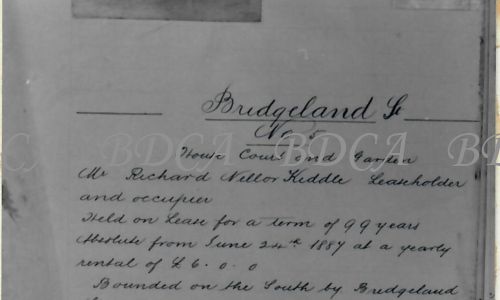 Bridgeland St
No 5
House Court and Garden
Mr Richard Nellor Kiddle Leaseholder
and occupier
Held on Lease for a term of 99 years
Absolute from June 24th 1887 at a yearly
rental of £6.0.0
Bounded on the South by Bridgeland
BDCA BDCA BD